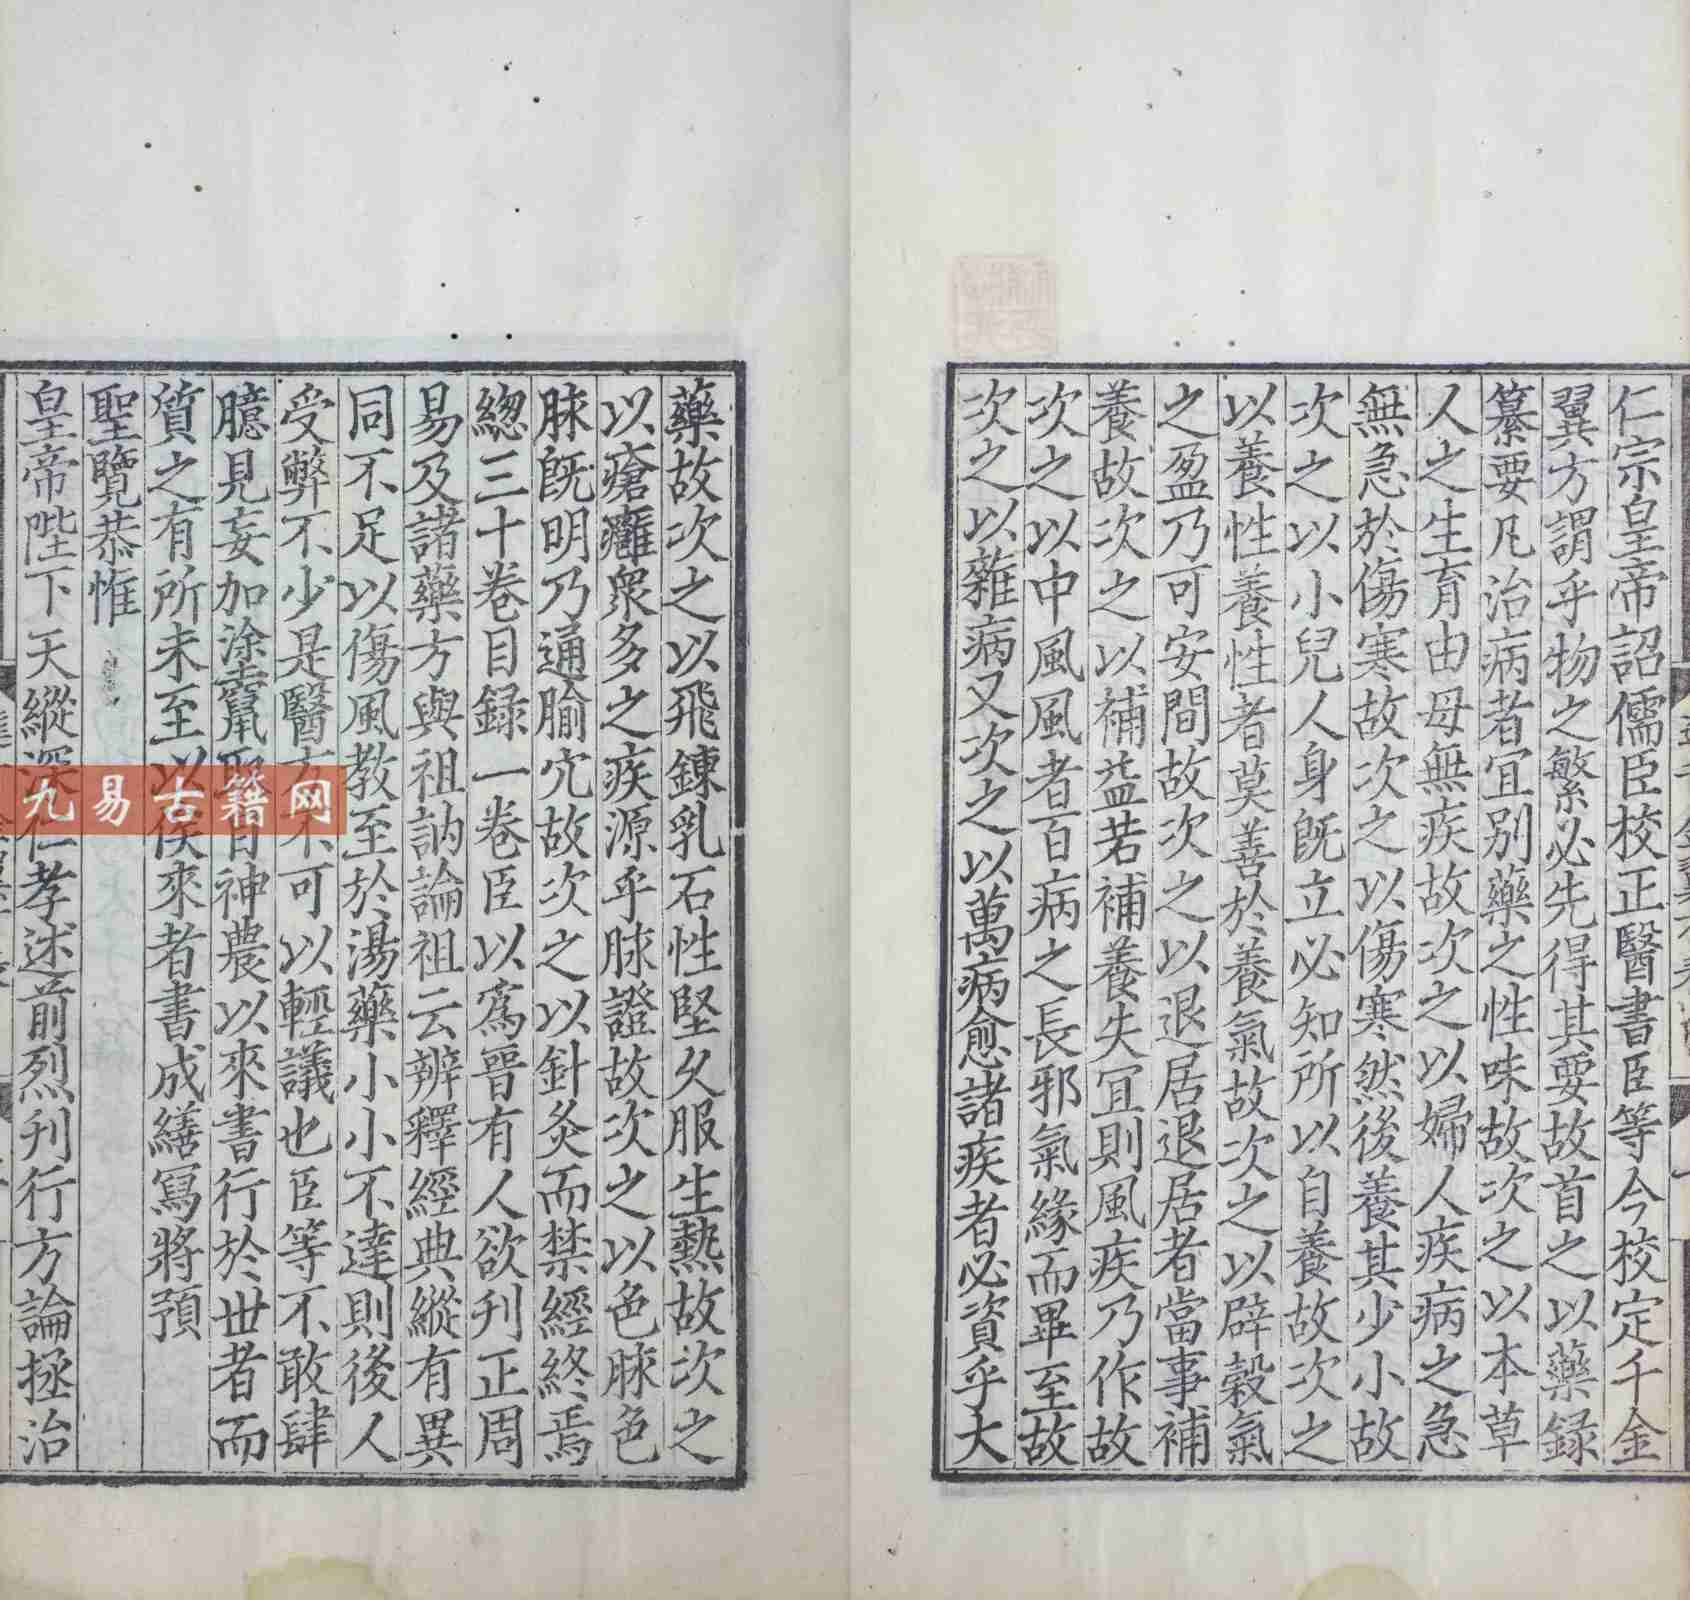 仁宗皇帝詔儒臣校正醫書臣等今校定千金
翼方謂乎物之繁必先得其要故首之以藥録
纂要凡治病者宜别藥之性味故次之以本草
人之生育由母無疾故次之以婦人疾病之急
無急於傷寒故次之以傷寒然後養其少小故
次之以小兒人身既立必知所以自養故次之
以養性養性者莫善於養氣故次之以辟穀氣
之盈乃可安閒故次之以退居退居者當事補
養故次之以補益若補養失宜則風疾乃作故
次之以中風風者百病之長邪氣緣而畢至故
次之以雜病又次之以萬病愈諸疾者必資乎大
藥故次之以飛鍊乳石性堅久服生熱故次之
以瘡癰衆多之疾源乎脉證故次之以色脉色
脉旣明乃通腧穴故次之以針灸而禁經終焉
緫三十卷目録一卷臣以爲晉有人欲刊正周
易及諸藥方與祖訥論祖云辨釋經典縱有異
同不足以傷風教至於湯藥小小不達則後人
受弊不少是醫方不可以輕議也臣等不敢肆
臆見妄加塗竄取自神農以來書行於世者而
質之有所未至以俟來者書成繕寫將預
聖覽恭惟
皇帝陛下天縱深仁孝述前烈刊行方論拯治
九易古籍网